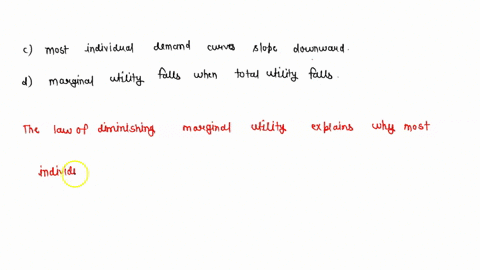 c) most individual demand curves slope downward.
d) marginal utility falls when total utility falls.
The law of diminishing marginal utility explains why most
individu